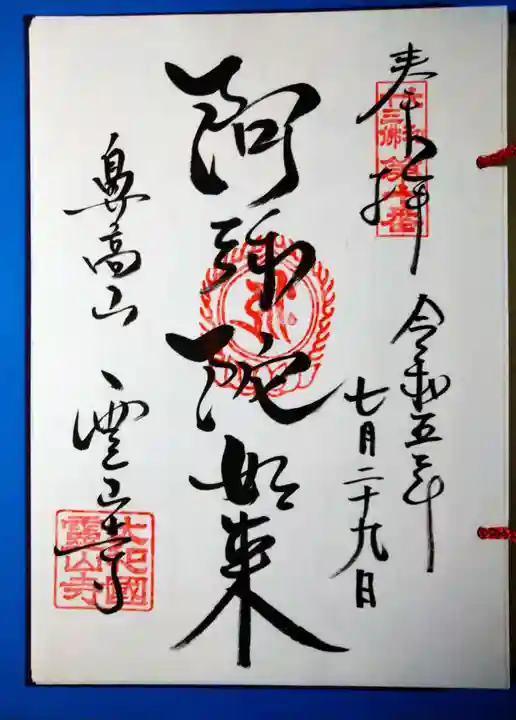 奉拝
大和十三佛第十番
令和五年
七月二十九日
阿弥陀如来
鼻高山
霊山寺
大和國
靈山寺